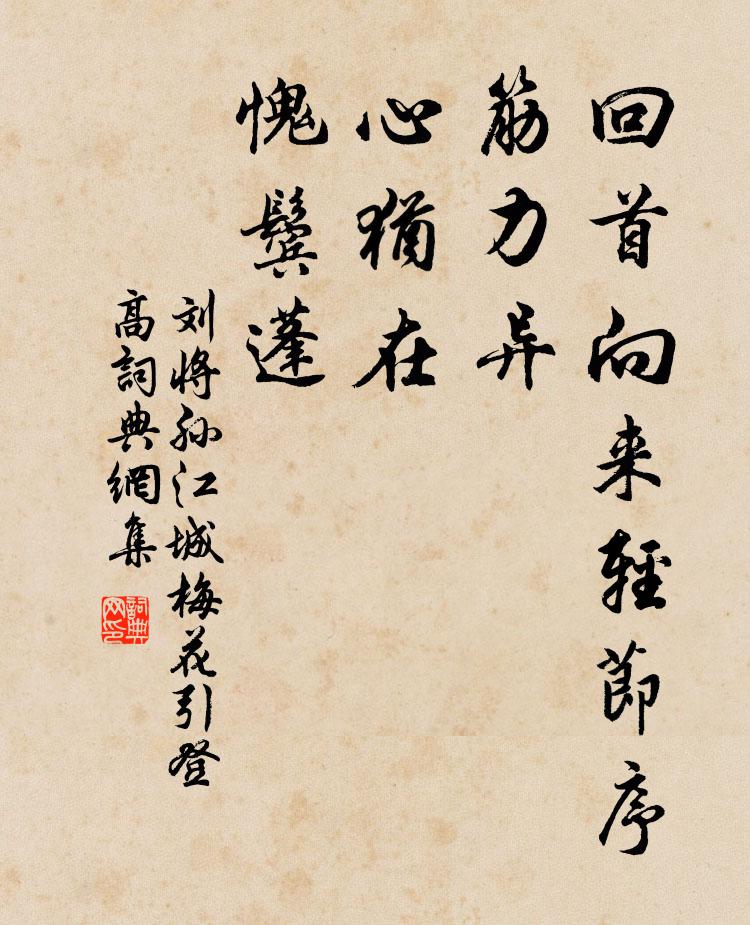 回首向来輕節序
筋力异
心猶在
愧鬓蓬
刘将孙江城梅花引登
高詞典網集
詞典网印